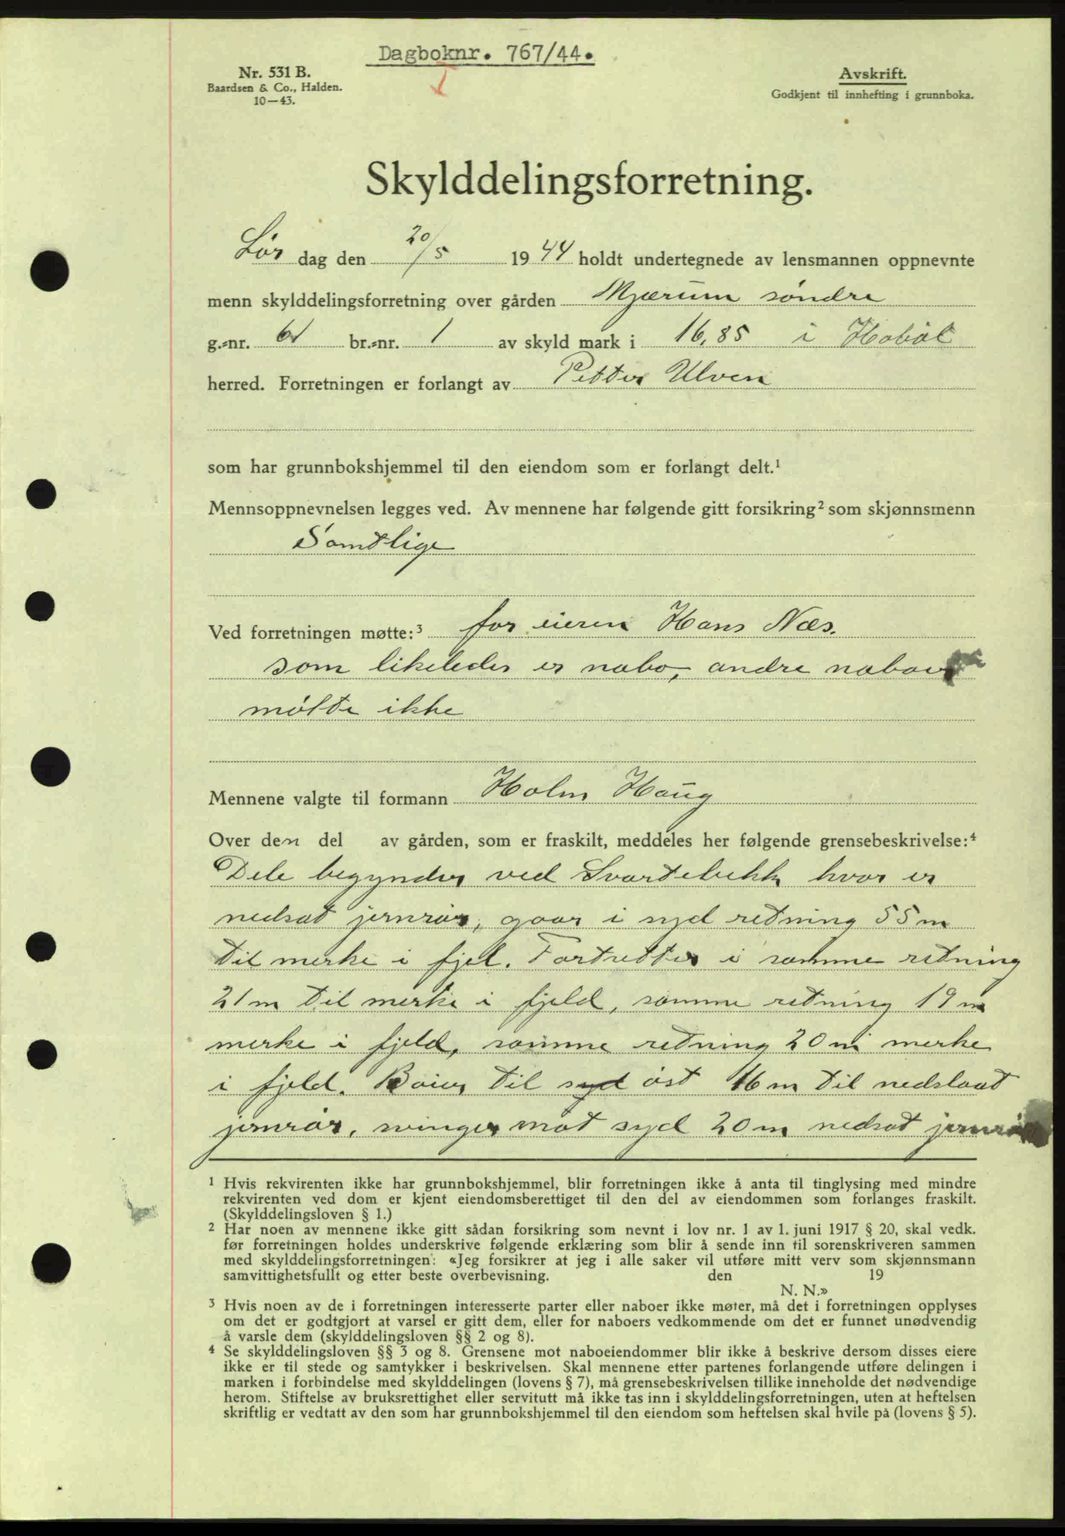 Dagboknr. 767/44.
Nr. 531 B.
Baardsen & Co., Halden.
10-43.
Avskrift.
Godkjent til innhefting i grunnboka.
Skylddelingsforretning.
Lør dag den 20/5 1944 holdt undertegnede av lensmannen oppnevnte
menn skylddelingsforretning over gården Mjærum søndre
g.-nr. 61 br.-nr. 1 av skyld mark i 16,85 i Hobøl
herred. Forretningen er forlangt av Petter Ulven
som har grunnbokshjemmel til den eiendom som er forlangt delt.¹
Mennsoppnevnelsen legges ved. Av mennene har følgende gitt forsikring² som skjønnsmenn
Samtlige
Ved forretningen møtte:³ for eieren Hans Næs.
som likeledes er nabo, andre naboer
møtte ikke
Mennene valgte til formann Holm Haug
Over den del av gården, som er fraskilt, meddeles her følgende grensebeskrivelse:⁴
Dele begynder ved Svartebekk hvor er
nedsat jernrør, gaar i syd retning 55 m
til merke i fjel. Fortsetter i samme retning
21 m til merke i fjeld, samme retning 19 m
merke i fjeld, samme retning 20 m merke
i fjeld. Bøier til syd øst 16 m til nedslaat
jernrør, svinger mot syd 20 m nedsat jernrør
¹ Hvis rekvirenten ikke har grunnbokshjemmel, blir forretningen ikke å anta til tinglysing med mindre
rekvirenten ved dom er kjent eiendomsberettiget til den del av eiendommen som forlanges fraskilt.
(Skylddelingsloven § 1.)
² Har noen av mennene ikke gitt sådan forsikring som nevnt i lov nr. 1 av 1. juni 1917 § 20, skal vedk.
før forretningen holdes underskrive følgende erklæring som blir å sende inn til sorenskriveren sammen
med skylddelingsforretningen: «Jeg forsikrer at jeg i alle saker vil utføre mitt verv som skjønnsmann
samvittighetsfullt og etter beste overbevisning. den 19
N. N.»
³ Hvis noen av de i forretningen interesserte parter eller naboer ikke møter, må det i forretningen opplyses
om det er godtgjort at varsel er gitt dem, eller for naboers vedkommende om det er funnet unødvendig
å varsle dem (skylddelingsloven §§ 2 og 8).
⁴ Se skylddelingsloven §§ 3 og 8. Grensene mot naboeiendommer blir ikke å beskrive dersom disses eiere
ikke er til stede og samtykker i beskrivelsen. Skal mennene etter partenes forlangende utføre delingen i
marken i forbindelse med skylddelingen (lovens § 7), må grensebeskrivelsen tillike inneholde det nødvendige
herom. Stiftelse av bruksrettighet eller servitutt må ikke tas inn i skylddelingsforretningen, uten at heftelsen
skriftlig er vedtatt av den som har grunnbokshjemmel til den eiendom som heftelsen skal hvile på (lovens § 5).